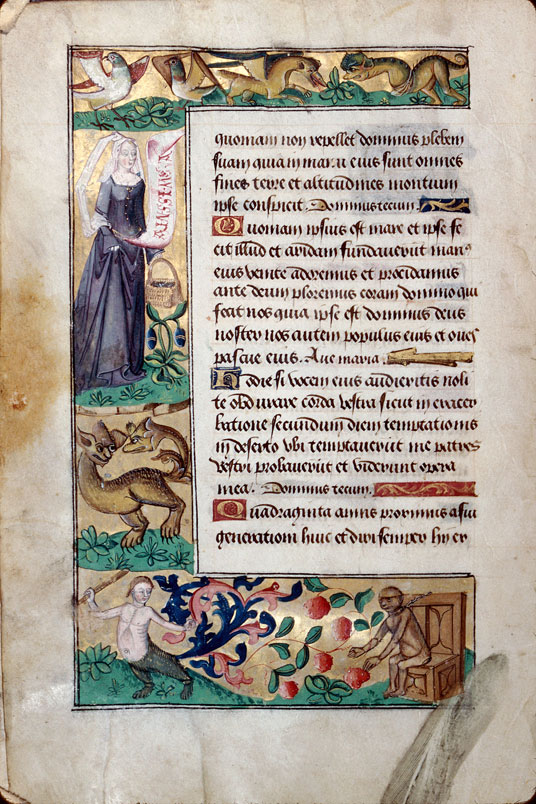 quoniam non repellet dominus plebem
suam quia in manu eius sunt omnes
fines terre et altitudines montium
ipse conspicit. Dominus tecum.
Quoniam ipsius est mare et ipse fe
cit illud et aridam fundaverunt man9
eius venite adoremus et procidamus
ante deum ploremus coram domino qui
fecit nos quia ipse est dominus deus
noster nos autem populus eius et oves
pascue eius. Ave maria.
Hodie si vocem eius audieritis noli
te obdurare corda vestra sicut in exacer
batione secundum diem temptationis
in deserto ubi temptaverunt me patres
vestri probaverunt et viderunt opera
mea. Dominus tecum.
Quadraginta annis proximus fui
generationi huic et dixi semper hij er